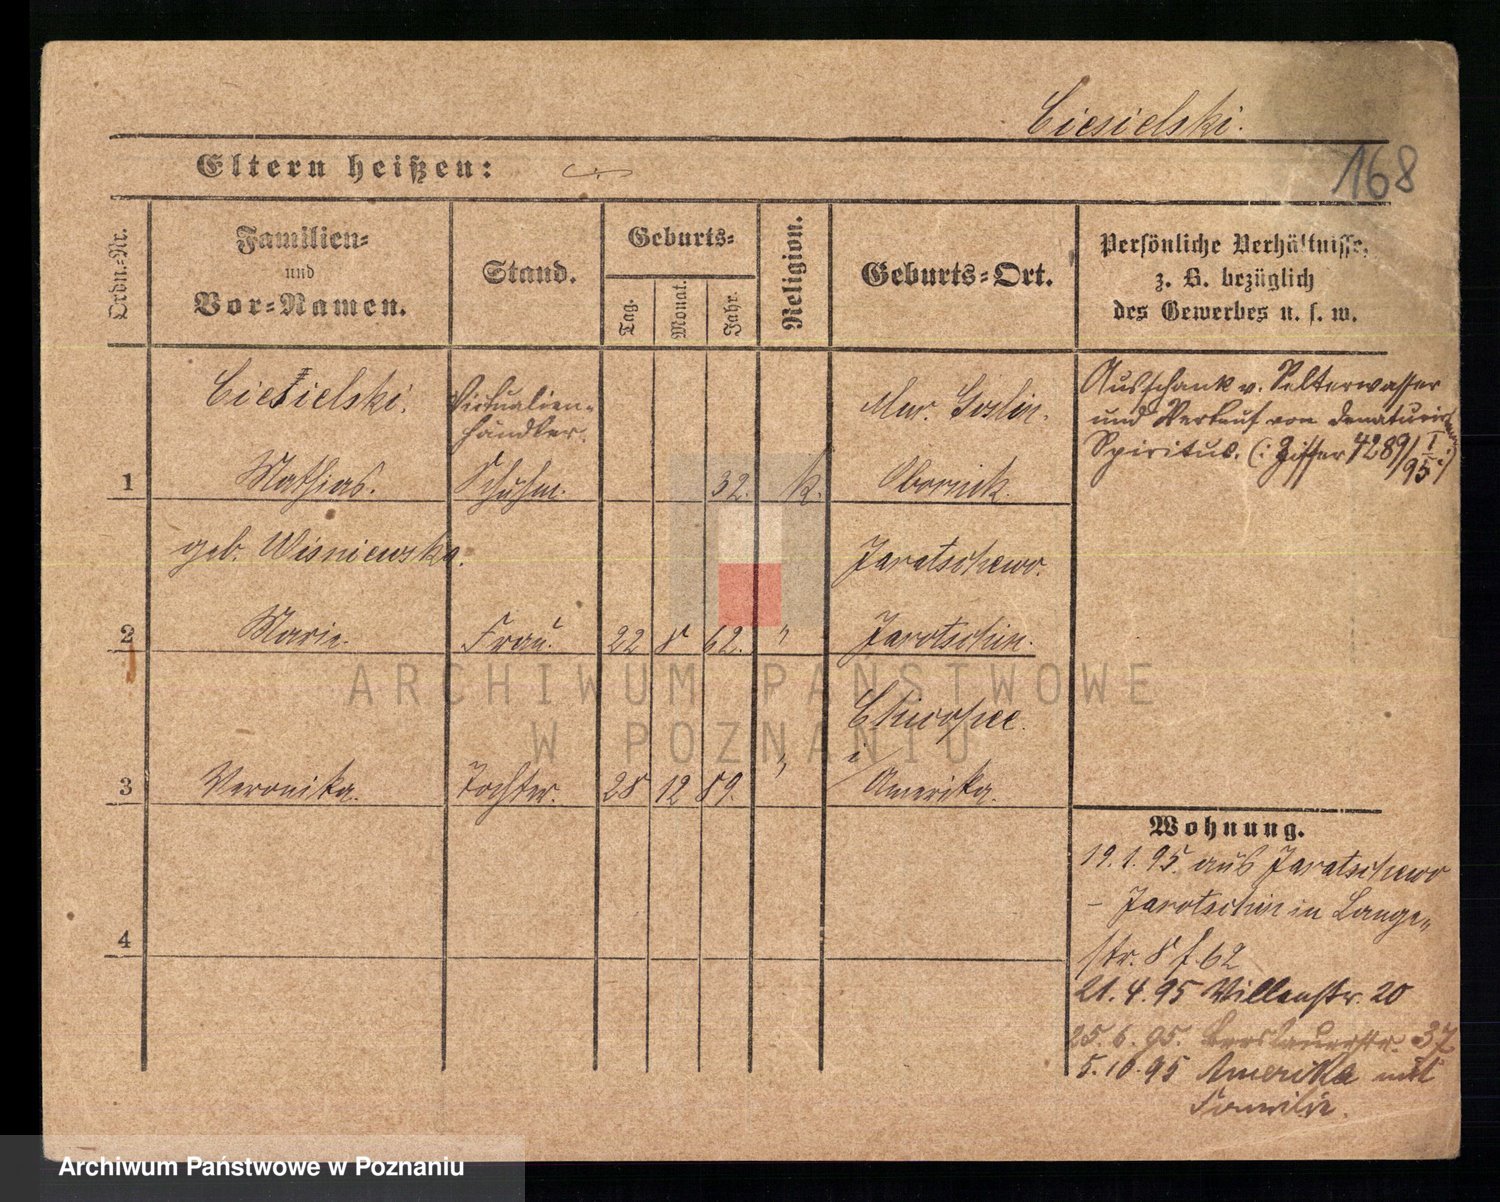 Ciesielski.
168
Eltern heißen:
Ordn.-Nr.
Familien-
und
Vor-Namen.
Stand.
Geburts-
Tag.
Monat.
Jahr.
Religion.
Geburts-Ort.
Persönliche Verhältnisse,
z. B. bezüglich
des Gewerbes u. s. w.
Ciesielski.
Viktualien-
händler.
Mur. Goslin.
Ausschank v. Selterwasser
und Verkauf von denaturirtem
Spiritus. (: Ziffer 4289/I/95 :)
1
Mathias.
Schuhm.
32.
k.
Obornik.
geb. Wisniewska.
Jaratschewo.
2
Marie.
Frau.
22
8
62.
"
Jarotschin.
i/
3
Veronika.
Tochter.
28
12
89.
"
Amerika.
4
Wohnung.
19.1.95. aus Jaratschewo
- Jarotschin in Lange-
str. 8 f. 62
21.4.95 Villenstr. 20
25.6.95. Breslauerstr. 37
5.10.95 Amerika mit
Familie.
ARCHIWUM PAŃSTWOWE
W POZNANIU
Archiwum Państwowe w Poznaniu